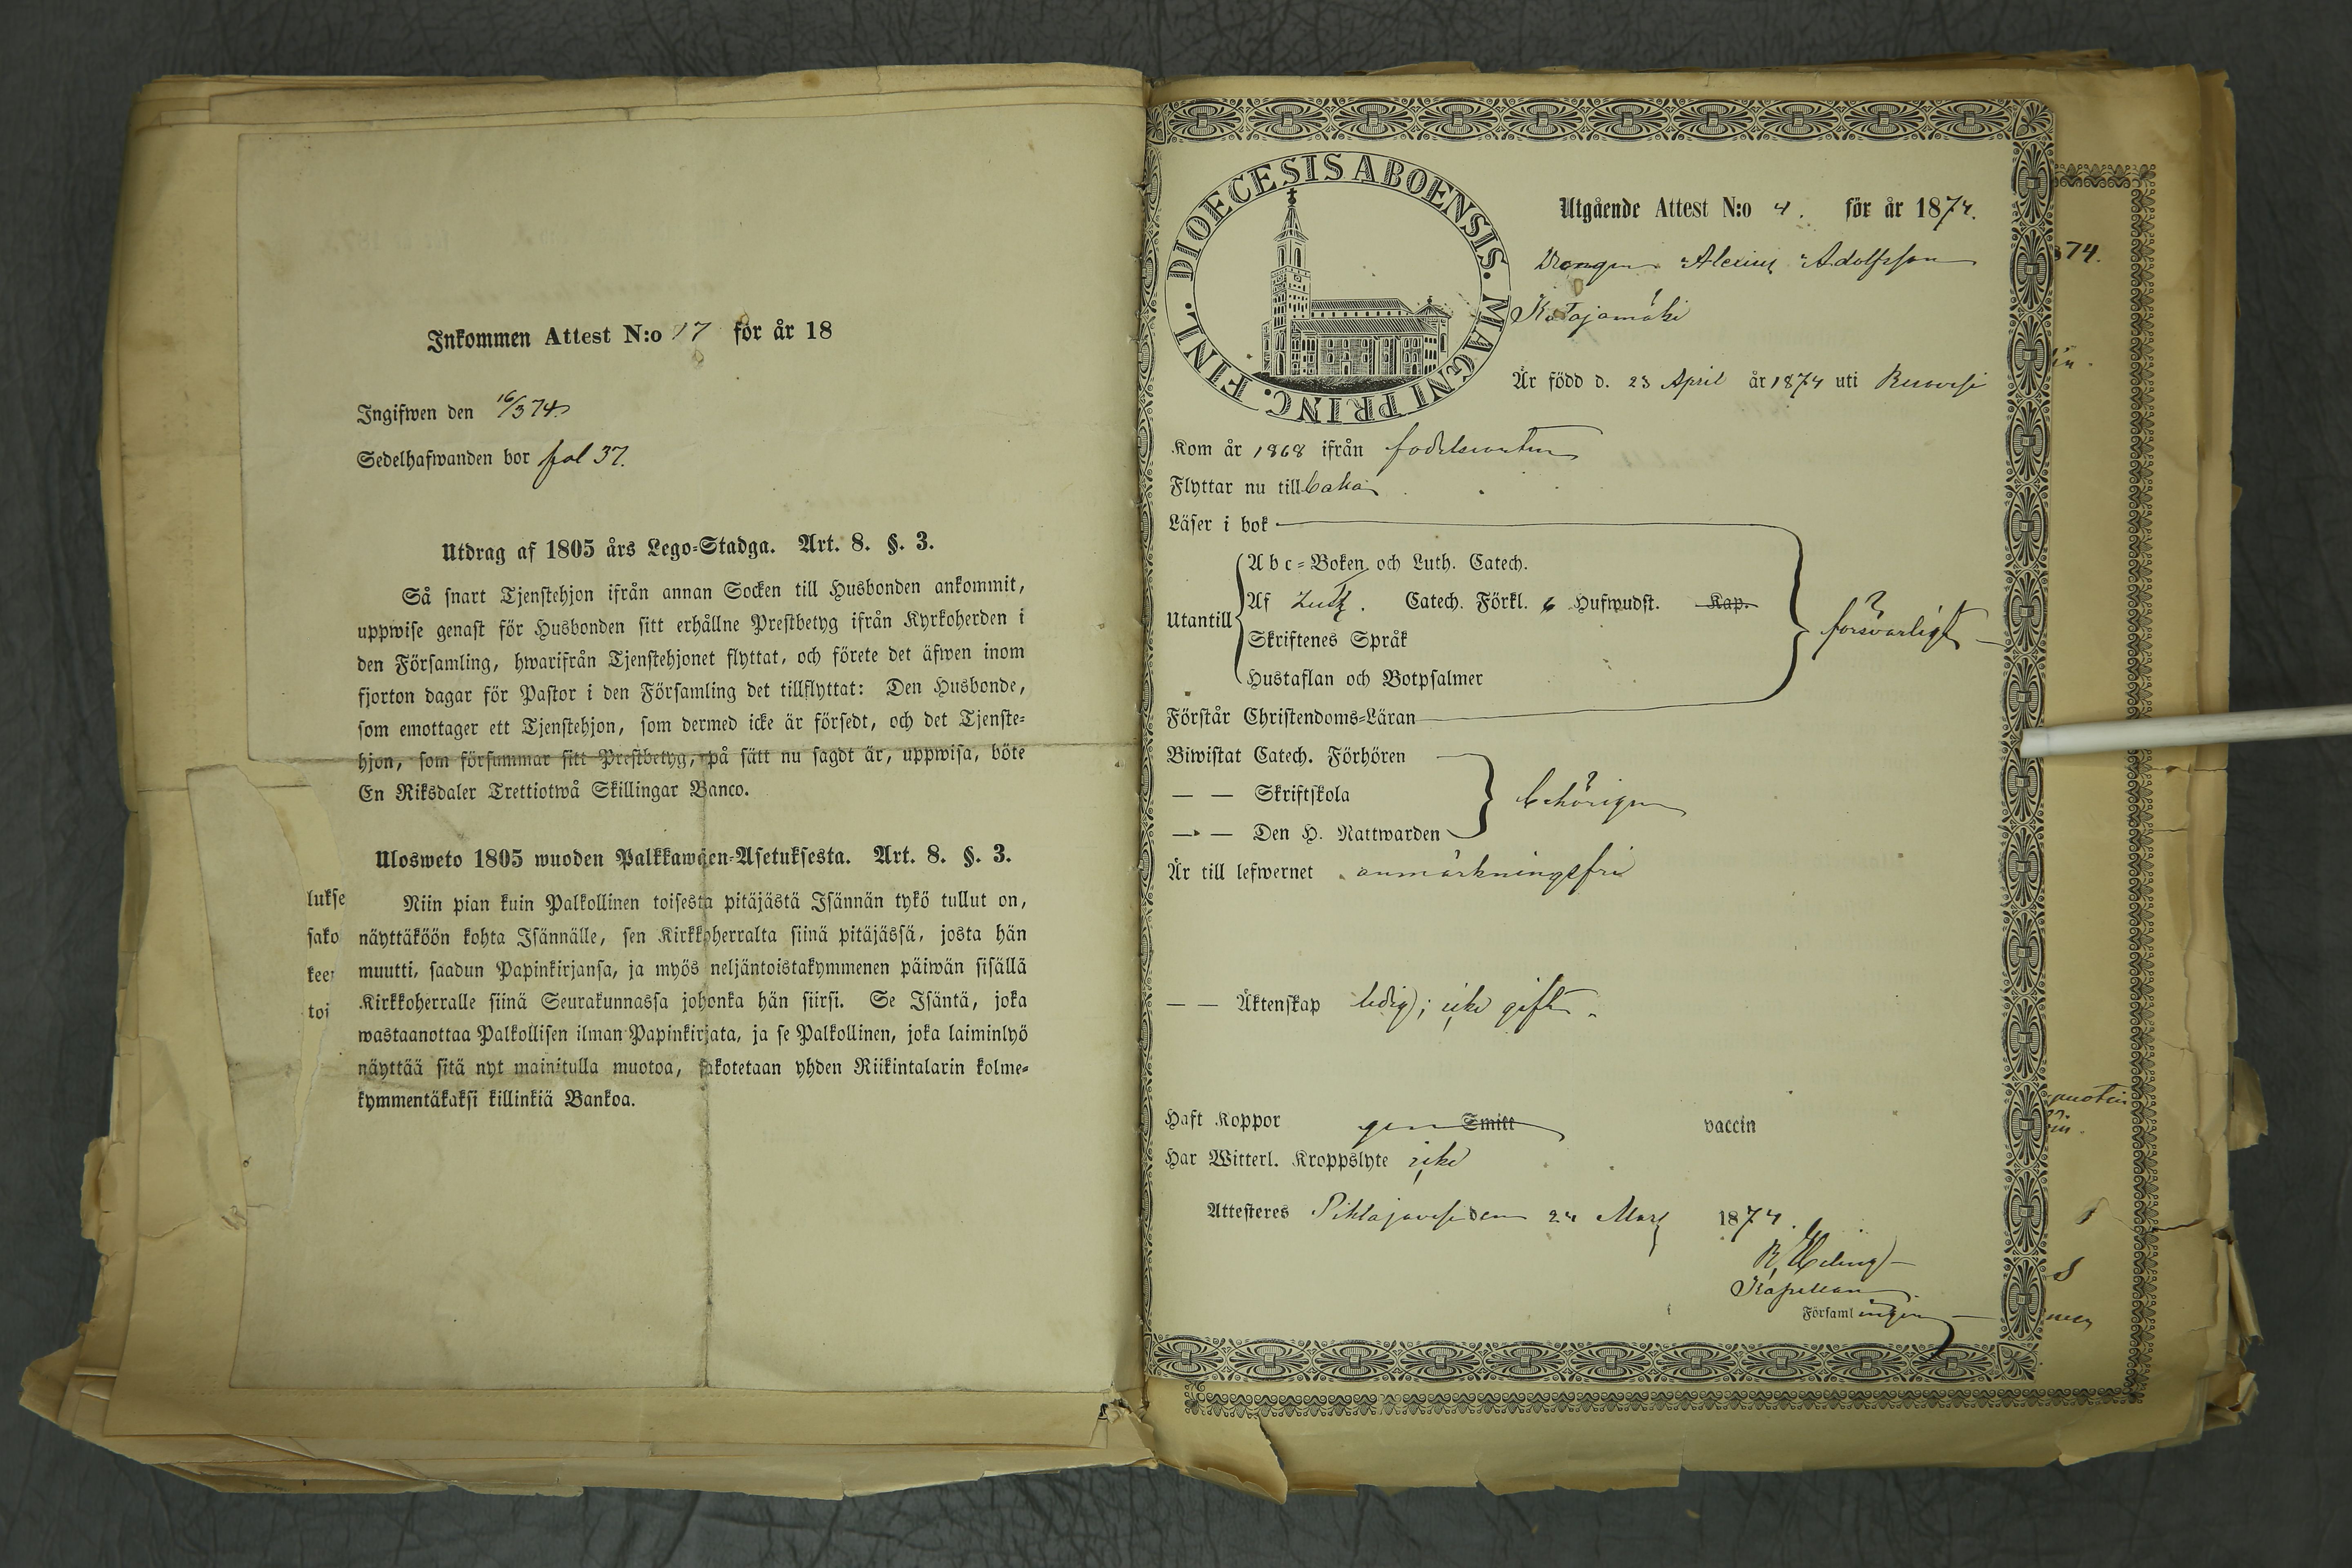 Inkommen Attest N:o 17 för år 18
Ingifwen den 16/3 74
Sedelhafwanden bor fol 37.
Utdrag af 1805 års Lego-Stadga. Art. 8. §. 3.
Så snart Tjenstehjon ifrån annan Socken till Husbonden ankommit,
uppwise genast för Husbonden sitt erhållne Prestbetyg ifrån Kyrkoherden i
den Församling, hwarifrån Tjenstehjonet flyttat, och förete det äfwen inom
fjorton dagar för Pastor i den Församling det tillflyttat: Den Husbonde,
som emottager ett Tjenstehjon, som dermed icke är försedt, och det Tjenste-
hjon, som försummar sitt Prestbetyg, på sätt nu sagdt är, uppwisa, böte
En Riksdaler Trettiotwå Skillingar Banco.
Ulosweto 1805 wuoden Palkkawäen-Asetuksesta. Art. 8. §. 3.
Niin pian kuin Palkollinen toisesta pitäjästä Isännän tykö tullut on,
näyttäköön kohta Isännälle, sen Kirkkoherralta siinä pitäjässä, josta hän
muutti, saadun Papinkirjansa, ja myös neljäntoistakymmenen päiwän sisällä
Kirkkoherralle siinä Seurakunnassa johonka hän siirsi. Se Isäntä, joka
wastaanottaa Palkollisen ilman Papinkirjata, ja se Palkollinen, joka laiminlyö
näyttää sitä nyt mainitulla muotoa, sakotetaan yhden Riikintalarin kolme-
kymmentäkaksi killinkiä Bankoa.
lukse
sako
kee
toi
DIOECESIS ABOENSIS. MAGNI PRINC. FINL.
Utgående Attest N:o 4. för år 1874.
Drengen Alexius Adolfsson
Katajamäki
Är född d. 23 April år 1874 uti Ruovesi
Kom år 1868 ifrån födelseorten
Flyttar nu till baka
Läser i bok
Utantill
Abc-Boken och Luth. Catech.
Af Catech. Förkl. 6 Hufwudst. Kap.
Skriftenes Språk
Hustaflan och Botpsalmer
försvarligt
Förstår Christendoms-Läran
Biwistat Catech. Förhören
— — Skriftskola
— — Den H. Nattwarden
behörigen
Är till lefwernet anmärkningsfri
— — Äktenskap ledig; icke gift.
Haft Koppor genom Smitt vaccin
Har Witterl. Kroppslyte icke
Attesteres Pihlajavesi den 24 Mars 1874.
Kapellan
Församlingen
874.